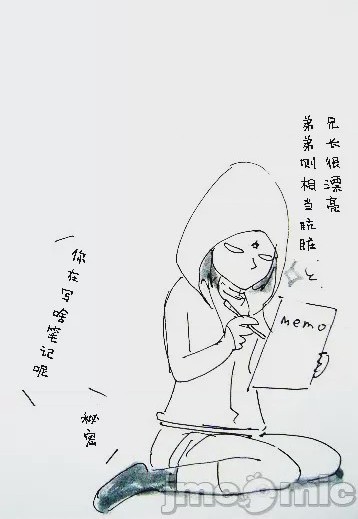 兄长很漂亮
弟弟则相当肮脏…と
memo
你在写啥笔记呢
秘密
jmcomic